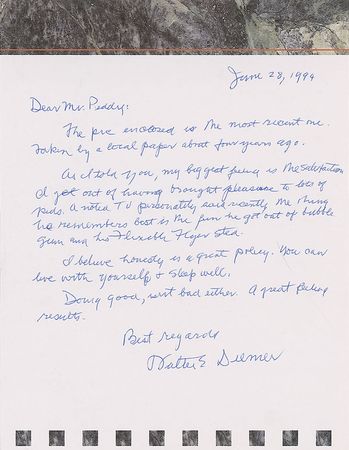 June 28, 1994
Dear Mr. Peddy:
The pic enclosed is the most recent one.
Taken by a local paper about four years ago.
As I told you, my biggest is the satisfaction
I get out of having brought pleasure to lots of
kids. A noted TV personality said recently the thing
he remembers best is the fun he got out of bubble
gum and his Flexible Flyer sled.
I believe honesty is a great policy. You can
live with yourself & sleep well.
Doing good, isn't bad either. A great feeling
results.
Best regards
Walter E Diemer